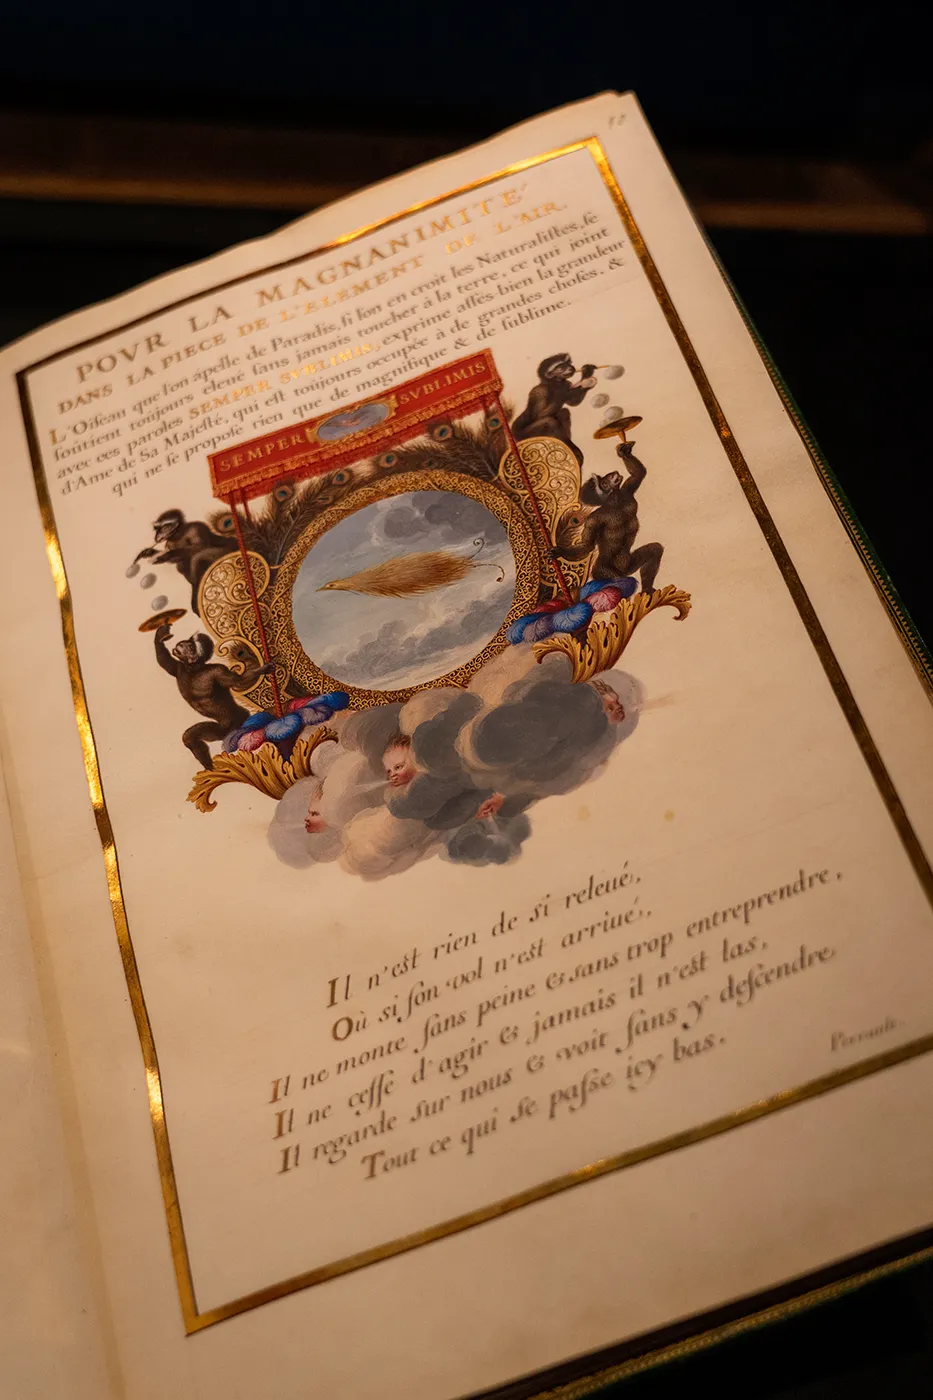 POVR LA MAGNANIMITÉ
DANS LA PIECE DE L'ELEMENT DE L'AIR.
L'Oiſeau que l'on apelle de Paradis, ſi l'on en croit les Naturaliſtes, ſe
ſoûtient toûjours eleué ſans jamais toucher à la terre, ce qui joint
avec ces paroles SEMPER SVBLIMIS, exprime aſſés bien la grandeur
d'Ame de Sa Majeſté, qui eſt toûjours occupée à de grandes choſes, &
qui ne ſe propoſe rien que de magnifique & de ſublime.
SEMPER SVBLIMIS
Il n'eſt rien de si releué,
Où si ſon vol n'eſt arriué,
Il ne monte ſans peine & sans trop entreprendre,
Il ne ceſſe d'agir & jamais il n'eſt las,
Il regarde sur nous & voit ſans y deſcendre
Tout ce qui se paſse icy bas.
Perrault.